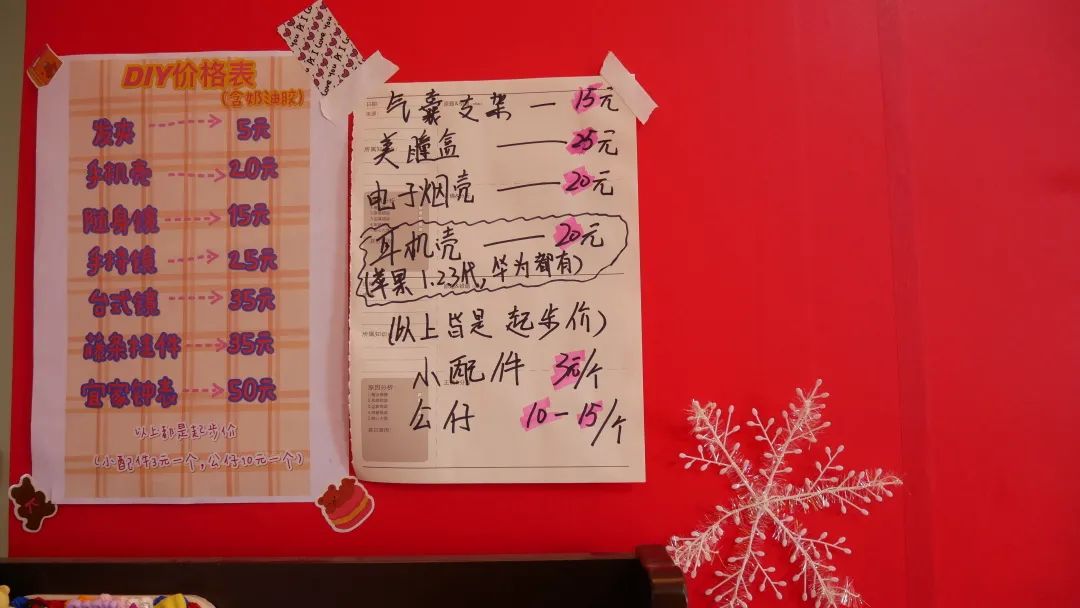 DIY价格表
(含奶油胶)
发夹 5元
手机壳 20元
随身镜 15元
手持镜 25元
台式镜 35元
藤条挂件 35元
宜家钟表 50元
以上都是起步价
(小配件3元一个,公仔10元一个)
气囊支架 — 15元
美瞳盒 — 25元
电子烟壳 — 20元
耳机壳 — 20元
(苹果1.2.3代,华为都有)
(以上皆是起步价)
小配件 3元/个
公仔 10-15/个
原因分析